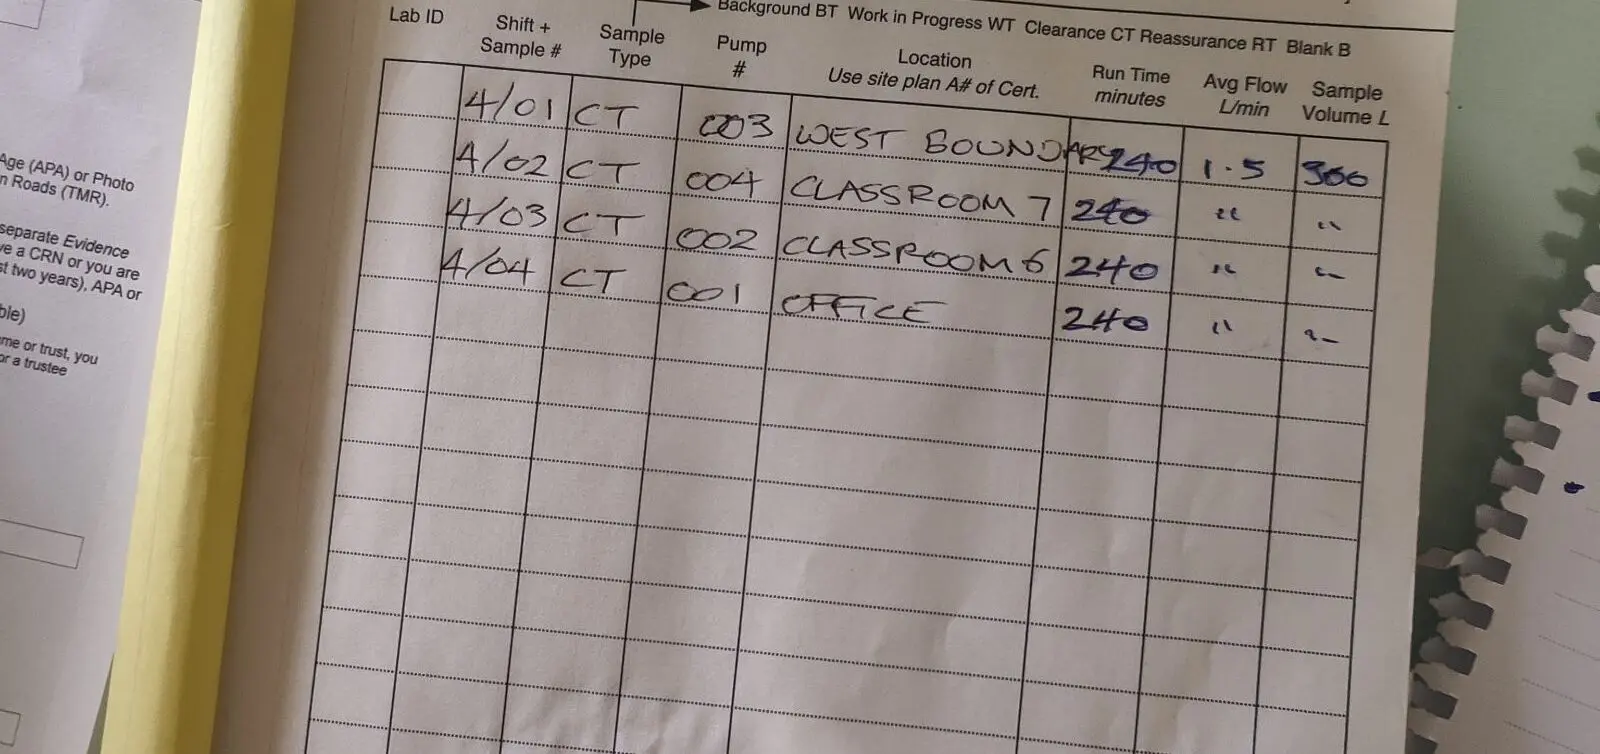 Background BT Work in Progress WT Clearance CT Reassurance RT Blank B
Lab ID Shift + Sample # Sample Type Pump # Location Use site plan A# of Cert. Run Time minutes Avg Flow L/min Sample Volume L
4/01 CT 003 WEST BOUNDARY 240 1.5 360
4/02 CT 004 CLASSROOM 7 240 " "
4/03 CT 002 CLASSROOM 6 240 " "
4/04 CT 001 OFFICE 240 " "
Age (APA) or Photo
n Roads (TMR).
separate Evidence
ve a CRN or you are
st two years), APA or
ble)
me or trust, you
or a trustee